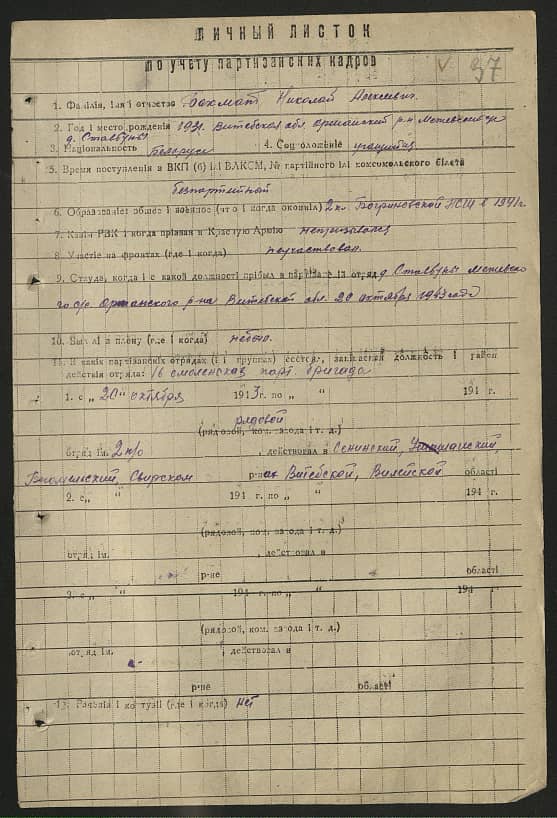 ЛИЧНЫЙ ЛИСТОК
по учету партизанских кадров
37
1. Фамілія, імя і отчество Бохмат Николай Алексеевич.
2. Год і место рождения 1931. Витебская обл. Оршанский р-н Межевский с/с
д. Сталбуны
3. Національность Беларус 4. Соц положение учащийся
5. Время поступления в ВКП (б) ілі ВЛКСМ, № партійного ілі комсомольского білета
безпартийный
6. Образованіе: общее і военное (что і когда окончіл) 2 кл. НСШ в 1941 г.
7. Какім РВК і когда прізван в Красную Армію непризывался
8. Участіе на фронтах (где і когда) неучаствовал.
9. Откуда, когда і с какой должності прібыл в партізанскій отряд д. Сталбуны Межевско
го с/с Оршанского р-на Витебской обл. 20 октября 1943 года
10. Был лі в плену (где і когда) небыл.
11. В какіх партізанскіх отрядах (і і группах) состоял, занімаемая должность і район
действія отряда: 16 смоленская парт. бригада
1. с „ 20 “ октября 1943 г. по „ “ 194 г.
рядовой
(рядовой, ком. взвода і т. д.)
отряд ім. 2 п/о , действовал в Сенинский, Ушашский
Бегомльский, Свирском р-нах Витебской, Вилейской області
2. с „ “ 194 г. по „ “ 194 г.
(рядовой, ком. взвода і т. д.)
отряд ім. , действовал в
р-не області
3. с „ “ 194 г. по „ “ 194 г.
(рядовой, ком. взвода і т. д.)
отряд ім. , действовал в
р-не області
12. Раненія і контузіі (где і когда) нет